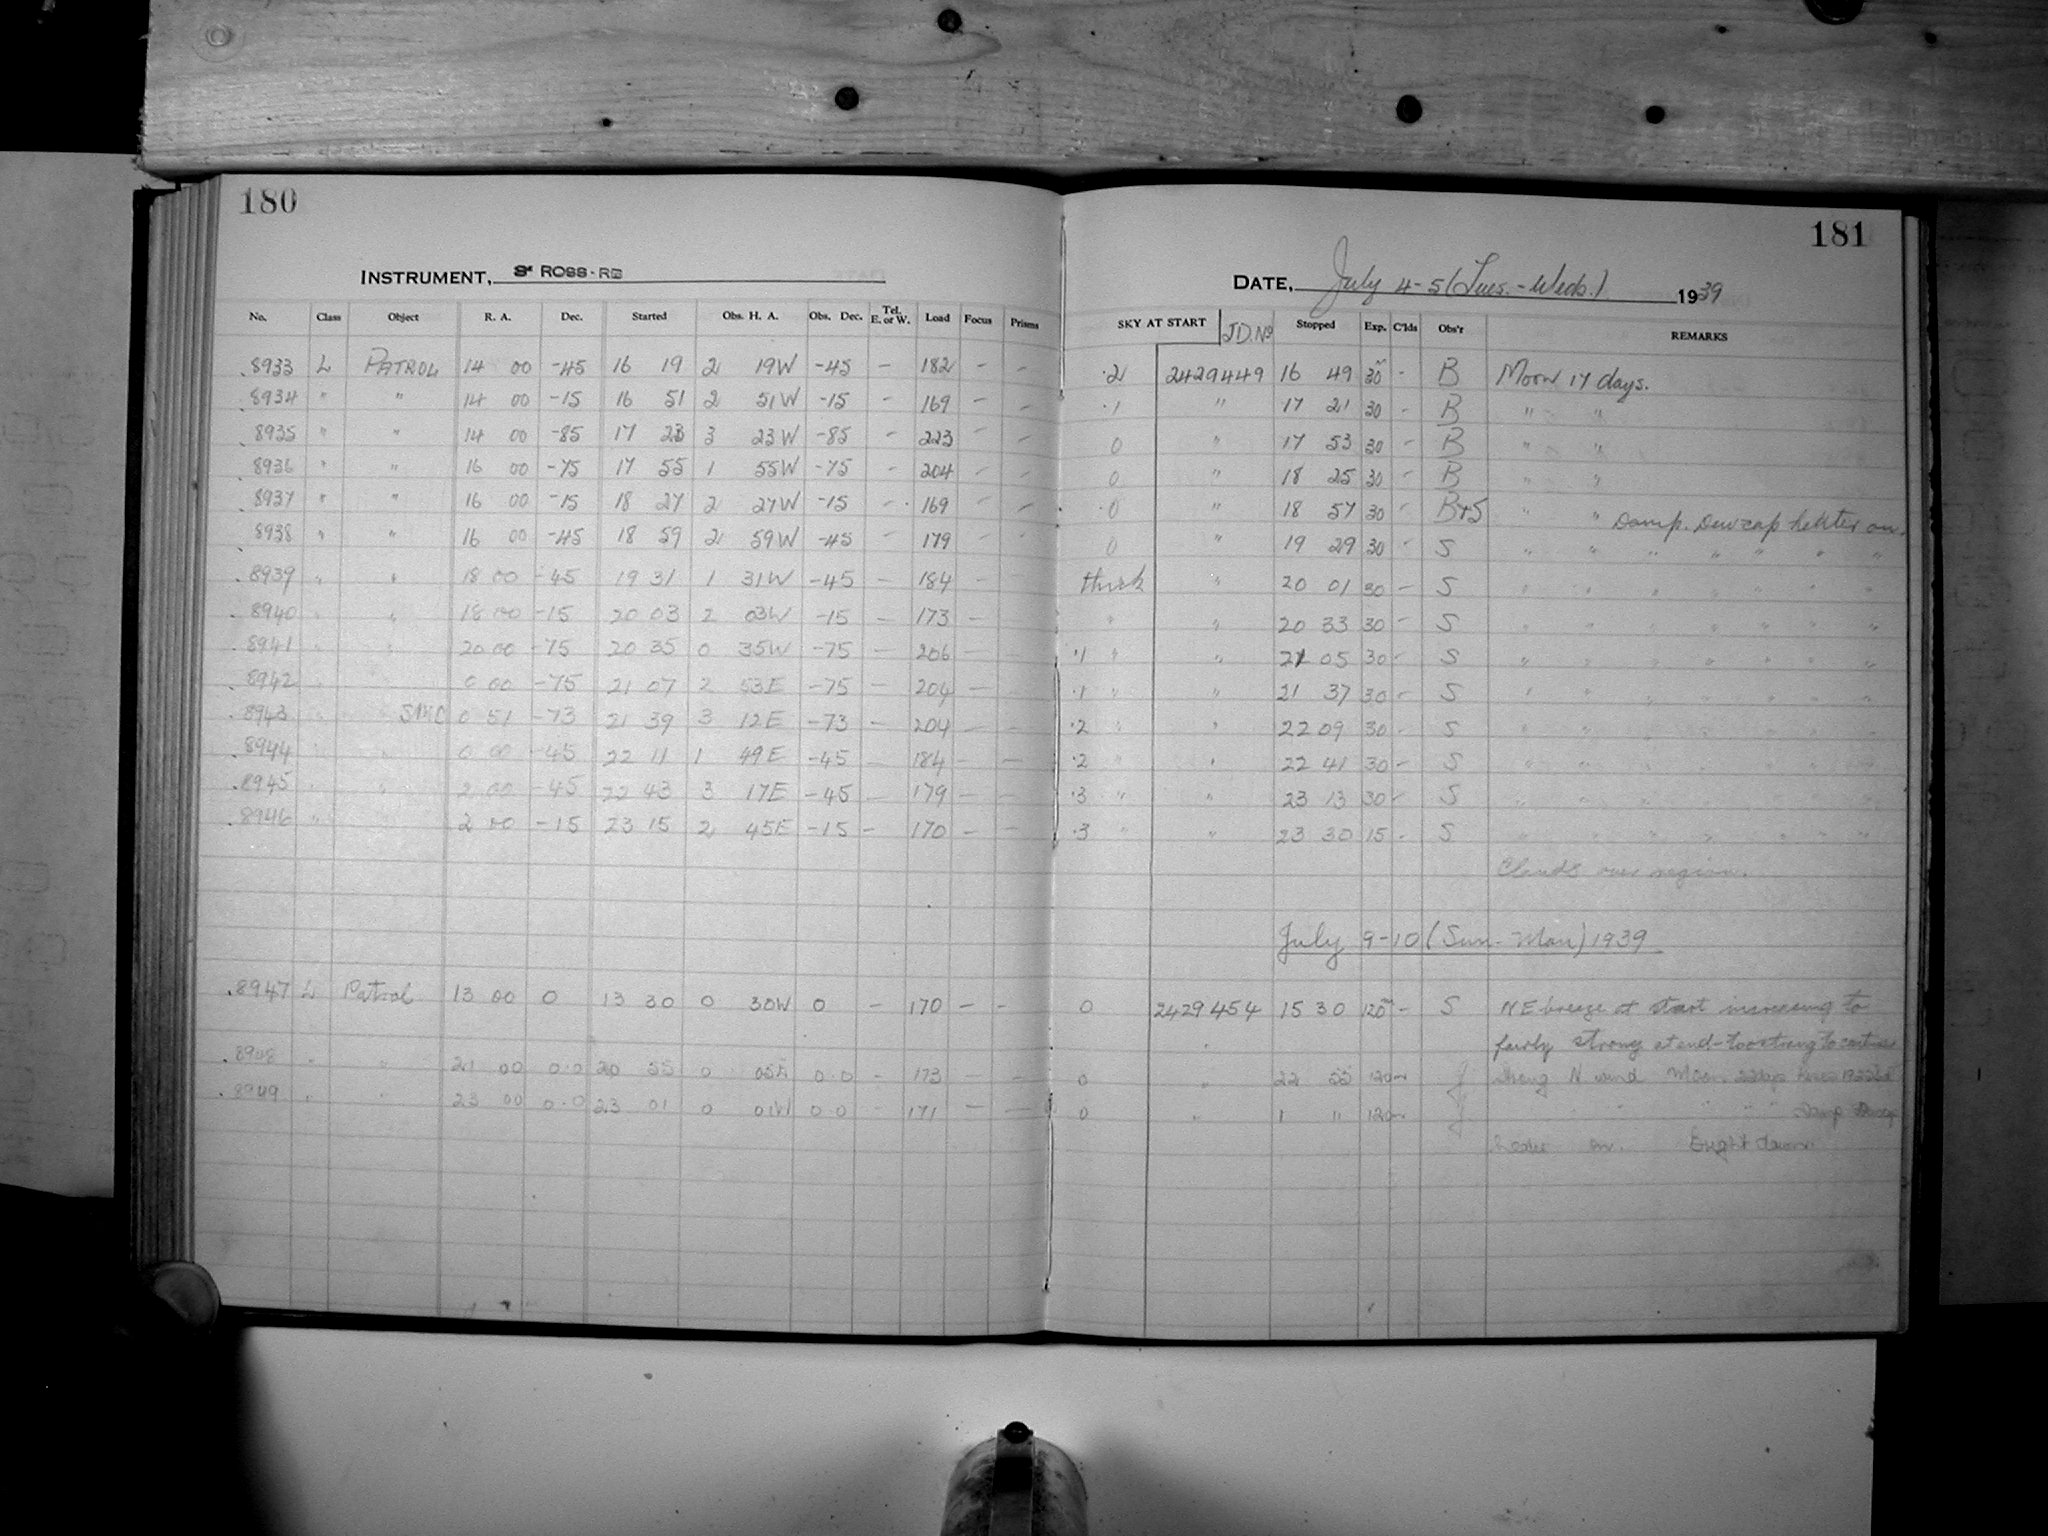 180
INSTRUMENT, 3" ROSS-RB
No. Class Object R. A. Dec. Started Obs. H. A. Obs. Dec. Tel. E. or W. Load Focus Prisms
8933 L PATROL 14 00 -45 16 19 2 19W -45 - 182 - -
8934 " " 14 00 -15 16 51 2 51W -15 - 169 - -
8935 " " 14 00 -85 17 23 3 23W -85 - 223 - -
8936 " " 16 00 -75 17 55 1 55W -75 - 204 - -
8937 " " 16 00 -15 18 27 2 27W -15 - 169 - -
8938 " " 16 00 -45 18 59 2 59W -45 - 179 - -
8939 " " 18 00 -45 19 31 1 31W -45 - 184 - -
8940 " " 18 00 -15 20 03 2 03W -15 - 173 - -
8941 " " 20 00 -75 20 35 0 35W -75 - 206 - -
8942 " " 0 00 -75 21 07 2 53E -75 - 204 - -
8943 " SMC 0 51 -73 21 39 3 12E -73 - 204 - -
8944 " " 0 00 -45 22 11 1 49E -45 - 184 - -
8945 " " 2 00 -45 22 43 3 17E -45 - 179 - -
8946 " " 2 00 -15 23 15 2 45E -15 - 170 - -
8947 L Patrol 13 00 0 13 30 0 30W 0 - 170 - -
8948 " " 21 00 0.0 20 55 0 05E 0.0 - 173 - -
8949 " " 23 00 0.0 23 01 0 01W 0.0 - 171 - -
181
DATE, July 4-5 (Tues.-Wed.) 1939
SKY AT START J.D. No Stopped Exp. C'lds Obs'r REMARKS
.2 2429449 16 49 30m - B Moon 17 days.
.1 " 17 21 30 - B " "
0 " 17 53 30 - B " "
0 " 18 25 30 - B " "
0 " 18 57 30 - B+S " " Damp. Dewcap heater on.
0 " 19 29 30 - S " " " " " " "
thick " 20 01 30 - S " " " " " " "
" " 20 33 30 - S " " " " " " "
.1 " " 21 05 30 - S " " " " " " "
.1 " " 21 37 30 - S " " " " " " "
.2 " " 22 09 30 - S " " " " " " "
.2 " " 22 41 30 - S " " " " " " "
.3 " " 23 13 30 - S " " " " " " "
.3 " " 23 30 15 - S " " " " " " "
Clouds over region.
July 9-10 (Sun-Mon) 1939
0 2429454 15 30 120m - S NE breeze at start increasing to
fairly strong at end - too strong to continue
0 " 22 55 120m J Strong N wind Moon 22 days
0 " 1 11 120m J " " " " " Damp Dewcap
heater on. Bright dawn.